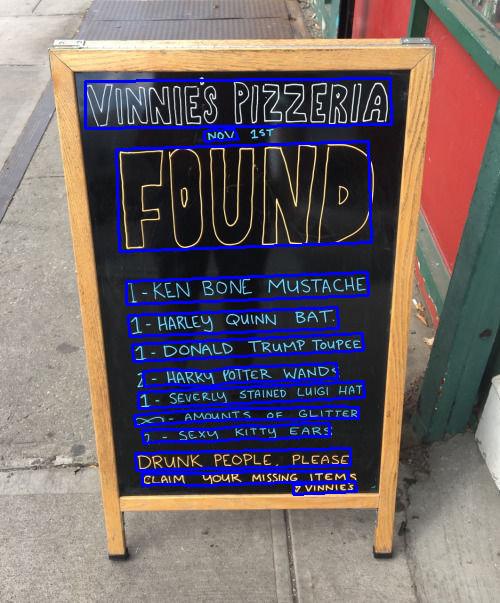 VINNIE'S PIZZERIA
NOV. 1ST
FOUND
1- KEN BONE MUSTACHE
1- HARLEY QUINN BAT.
1- DONALD TRUMP TOUPEE
2- HARRY POTTER WANDS
1- SEVERLY STAINED LUIGI HAT
∞- AMOUNTS OF GLITTER
- SEXY KITTY EARS
DRUNK PEOPLE, PLEASE
CLAIM YOUR MISSING ITEMS
VINNIE'S